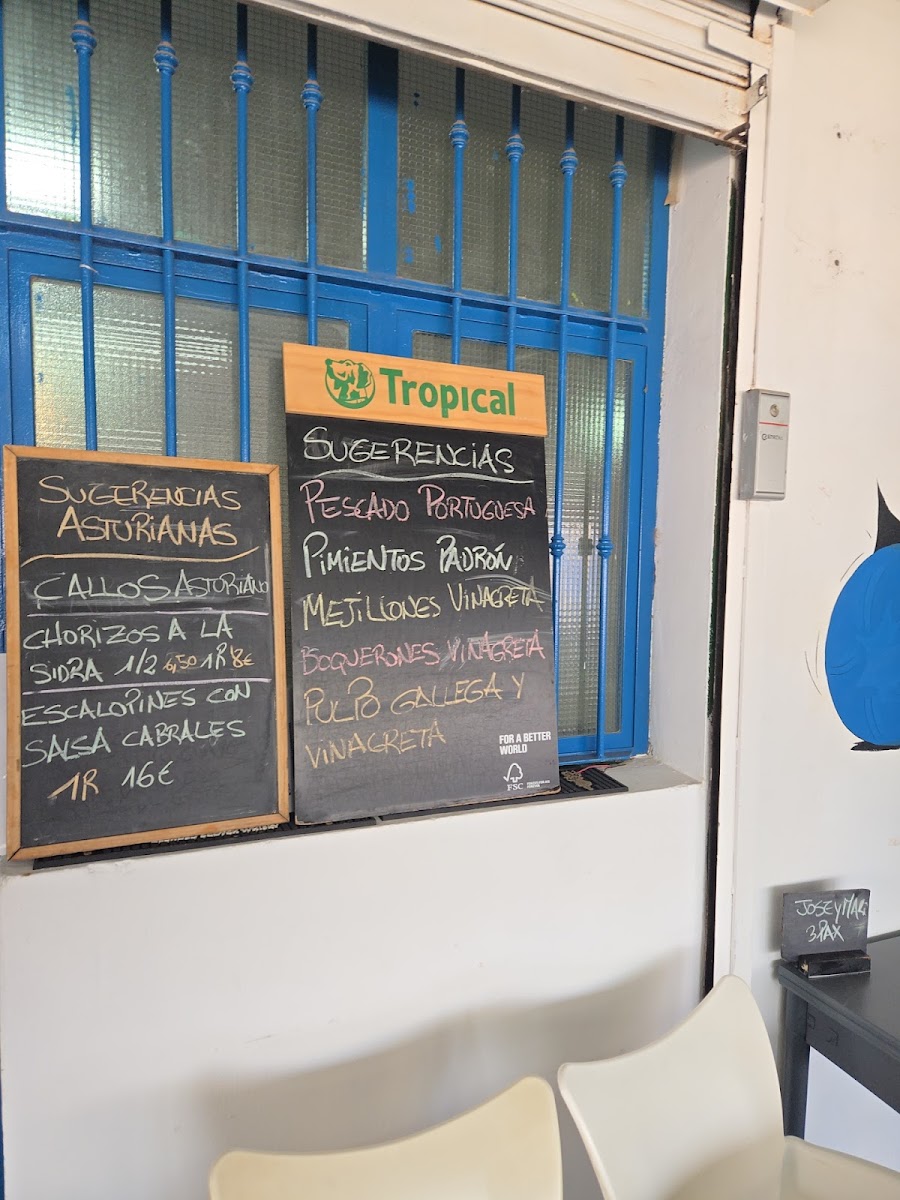 SUGERENCIAS
ASTURIANAS
CALLOS ASTURIANO
CHORIZOS A LA
SIDRA 1/2 6,50 1R 8€
ESCALOPINES CON
SALSA CABRALES
1R 16€
Tropical
SUGERENCIAS
PESCADO PORTUGUESA
PIMIENTOS PADRÓN
MEJILLONES VINAGRETA
BOQUERONES VINAGRETA
PULPO GALLEGA Y
VINAGRETA
FOR A BETTER
WORLD
FSC
JOSE Y MARI
3PAX